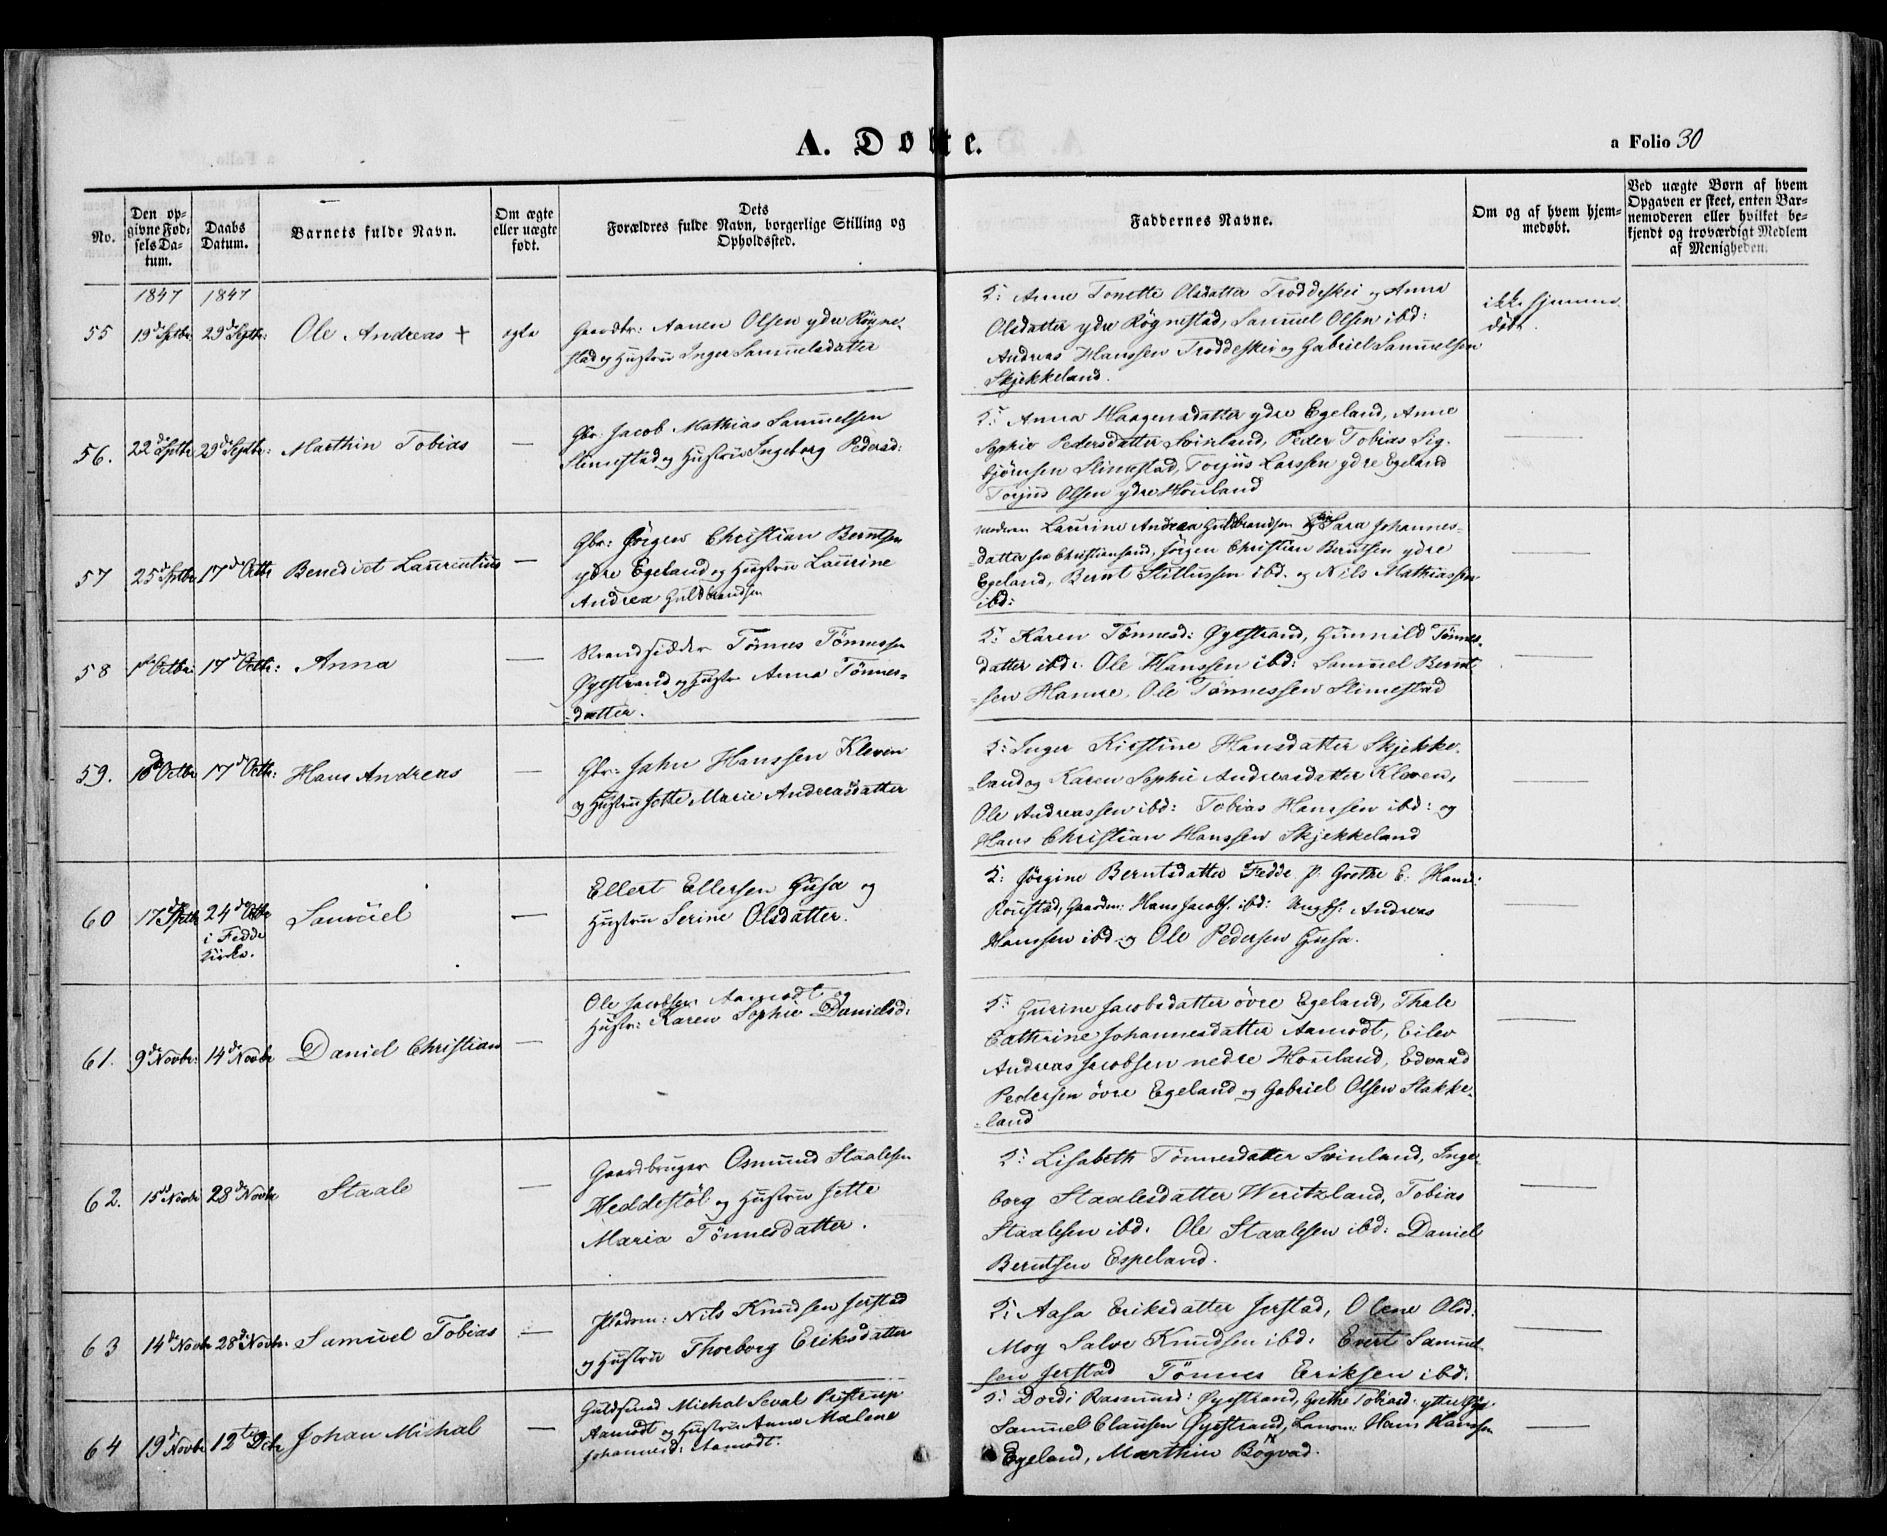 A. Døbte.
a Folio 30
No.
Den opgivne Fødsels Datum.
Daabs Datum.
Barnets fulde Navn.
Om ægte eller uægte født.
Dets Forældres fulde Navn, borgerlige Stilling og Opholdssted.
Faddernes Navne.
Om og af hvem hjemmedøbt.
Ved uægte Børn af hvem Opgaven er skeet, enten Barnemoderen eller hvilket bekjendt og troværdigt Medlem af Menigheden.
1847 1847
55 19d Septbr 29d Septbr: Ole Andreas + ægte
Gaardbr: Aanen Olsen ydre Røgne-
stad og Hustru Inger Samuelsdatter
Anne Tonette Olsdatter Troddeskei og Anna
Olsdatter ydre Røgnestad, Samuel Olsen ibd:
Andreas Hanssen Troddeskei og Gabriel Samuelsen
Skjekkeland.
ikke hjemme
døbt.
56. 22d Septbr 29d Septbr: Marthin Tobias —
Gbr: Jacob Mathias Samuelsen
Slimestad og Hustru Ingeborg Pedersd:
Anna Haagensdatter ydre Egeland, Anne
Sophie Pedersdatter Svinland, Peder Tobias Sig-
bjørnsen Slimestad, Torjus Larssen ydre Egeland
Torjus Olsen ydre Houland
57 25d Septbr 17d Octbr Benedict Laurentius —
Gbr: Jørgen Christian Berntsen
ydre Egeland og Hustru Laurine
Andrea Guldbrandsen
Moderen Laurine Andrea Guldbrandsen Sara Johannes-
datter fra Christiansand, Jørgen Christian Berntsen ydre
Egeland, Bernt Stillussen ibd. og Nils Mathiassen
ibd:
58 1ste Octbr 17d Octbr: Anna —
Strandsidder Tønnes Tønnessen
Øyestrand og Hustr Anna Tønnes-
datter.
Karen Tønnesd: Øyestrand, Gunnild Tønnes-
datter ibd: Ole Hanssen ibd: Samuel Bernt
sen Hamre, Ole Tønnessen Slimestad
59. 10d Octbr 17d Octbr: Hans Andreas —
Gbr: Jahn Hanssen Kleven
og Hustru Jotte Marie Andreasdatter
Inger Kirstine Hansdatter Skjekke-
land og Karen Sophie Andreasdatter Kleven,
Ole Andreassen ibd: Tobias Hanssen ibd: og
Hans Christian Hanssen Skjekkeland
60 17d Septbr 24d Octbr
i Fedde
Kirke. Samuel —
Ellert Ellersen Gusa og
Hustru Serine Olsdatter.
Jørgine Berntsdatter Fedde p. Goethe E. Hans:
Roustad, Gaardm: Hans Jacobs. ibd: Ungk: Andreas
Hanssen ibd og Ole Pedersen Gusa.
61. 9d Novbr: 14d Novbr Daniel Christian —
Ole Jacobsen Aamodt og
Hustr: Karen Sophie Danielsd:
Gurine Jacobsdatter øvre Egeland, Thale
Cathrine Johannesdatter Aamodt, Eilev
Andreas Jacobsen nedre Houland, Edvard
Pedersen øvre Egeland og Gabriel Olsen Stakke-
land
62. 15d Novbr 28d Novbr Staale —
Gaardbruger Osmund Staalesen
Heddestøl og Hustru Jette
Maria Tønnesdatter.
Lisabeth Tønnesdatter Svinland, Inge-
borg Staalesdatter Weritzland, Tobias
Staalesen ibd: Ole Staalesen ibd: Daniel
Berntsen Espeland.
63 14d Novbr 28d Novbr: Samuel Tobias —
Pladsm: Nils Knudsen Jerstad
og Hustru Thorborg Eriksdatter
Aasa Eriksdatter Jerstad, Olene Olsd:
Moy Salve Knudsen ibd: Evert Samuel-
sen Jerstad Tønnes Eriksen ibd:
64 19d Novbr 12te Dcbr Johan Michal —
Guldsmed Michal Seval Pistrup
Aamodt og Hustru Anne Malene
Johannesd: Aamodt.
Dordi Rasmusd: Øyestrand, Gurthe Tobiasd: ytter
Samuel Clausen Øyestrand, Hans Hanssen
Egeland, Marthin Bøgvad.